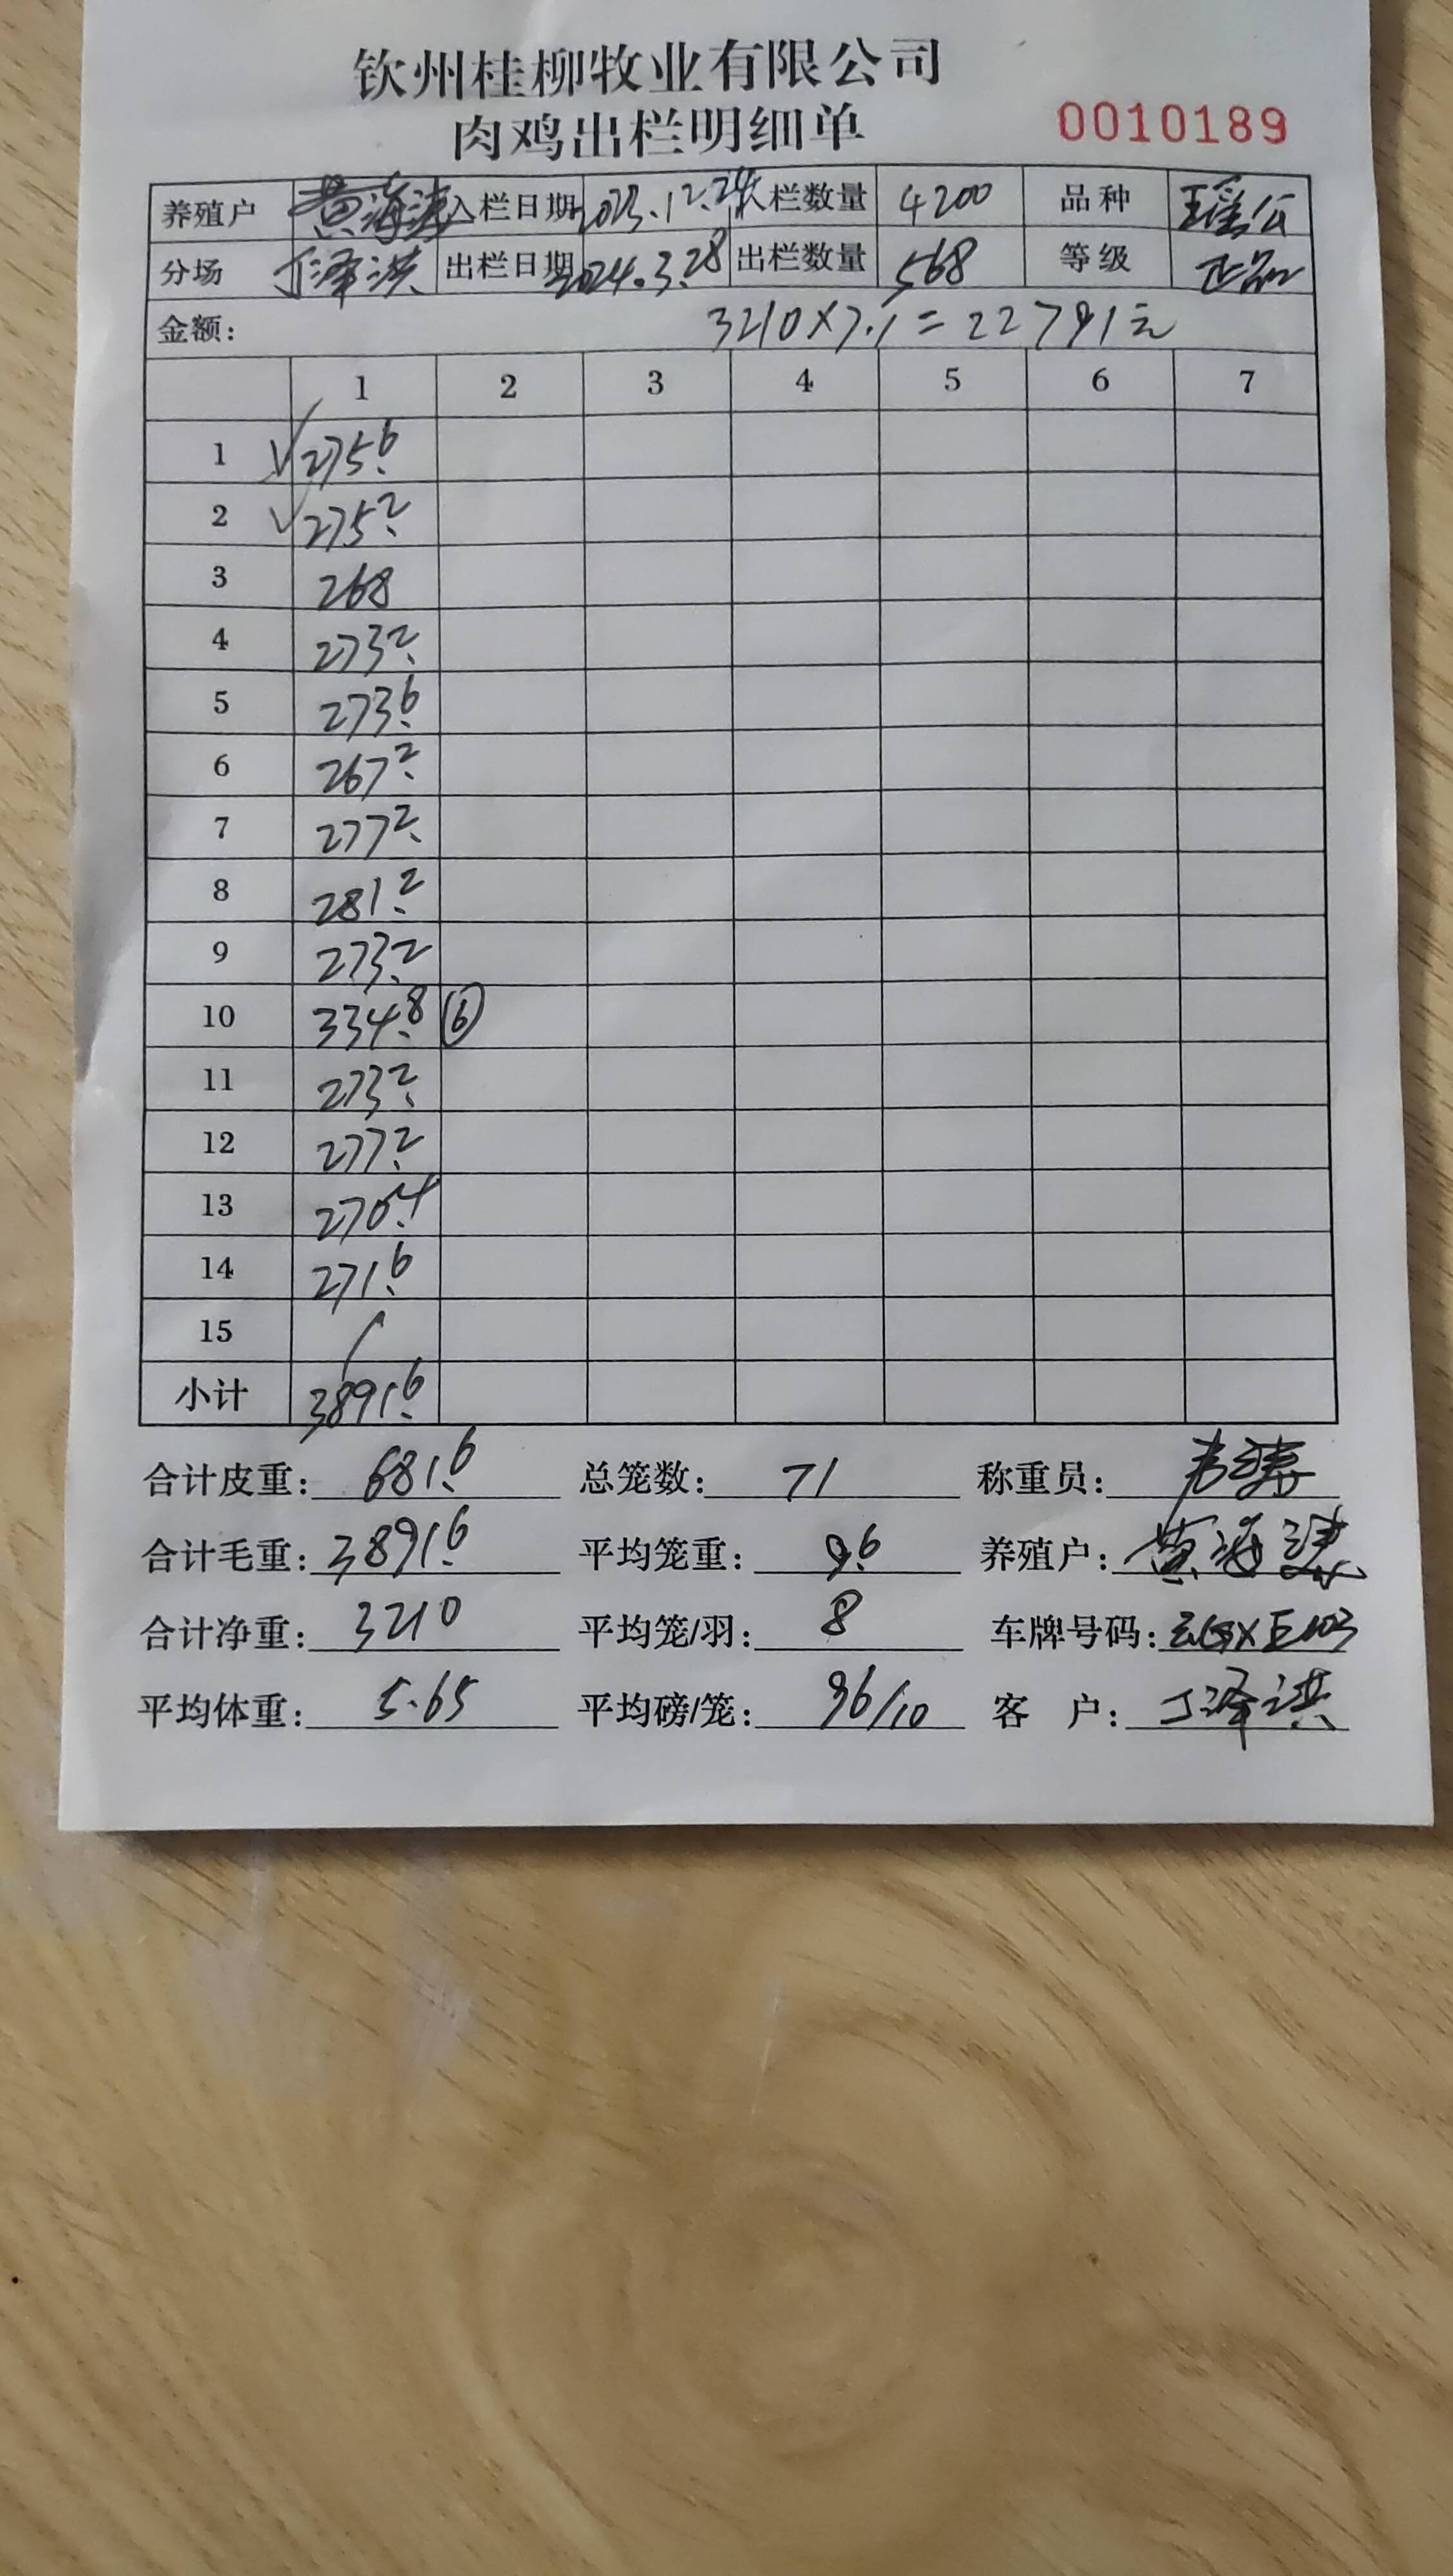 钦州桂柳牧业有限公司
肉鸡出栏明细单 0010189
养殖户 黄海 入栏日期 2023.12.24 入栏数量 4200 品种 瑶公
分场 丁泽洪 出栏日期 2024.3.28 出栏数量 568 等级 正品
金额: 3210×7.1=22791元
1 2 3 4 5 6 7
1 275.6
2 275.2
3 268
4 273.2
5 273.6
6 267.2
7 277.2
8 281.2
9 273.2
10 334.8 ⑥
11 273.2
12 277.2
13 270.4
14 271.6
15
小计 3891.6
合计皮重: 681.6 总笼数: 71 称重员:
合计毛重: 3891.6 平均笼重: 9.6 养殖户: 黄海
合计净重: 3210 平均笼/羽: 8 车牌号码:
平均体重: 5.65 平均磅/笼: 96/10 客 户: 丁泽洪